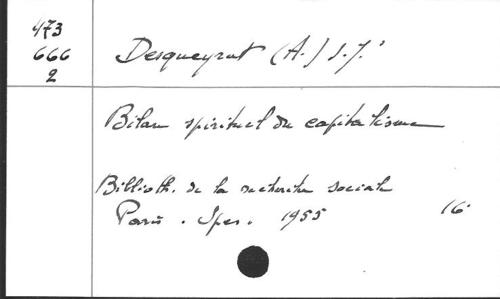 473
666
2
Desqueyrat (A.) s.j.
Bilan spirituel du capitalisme
Biblioth. de la recherche sociale
Paris. Spes. 1955 16°